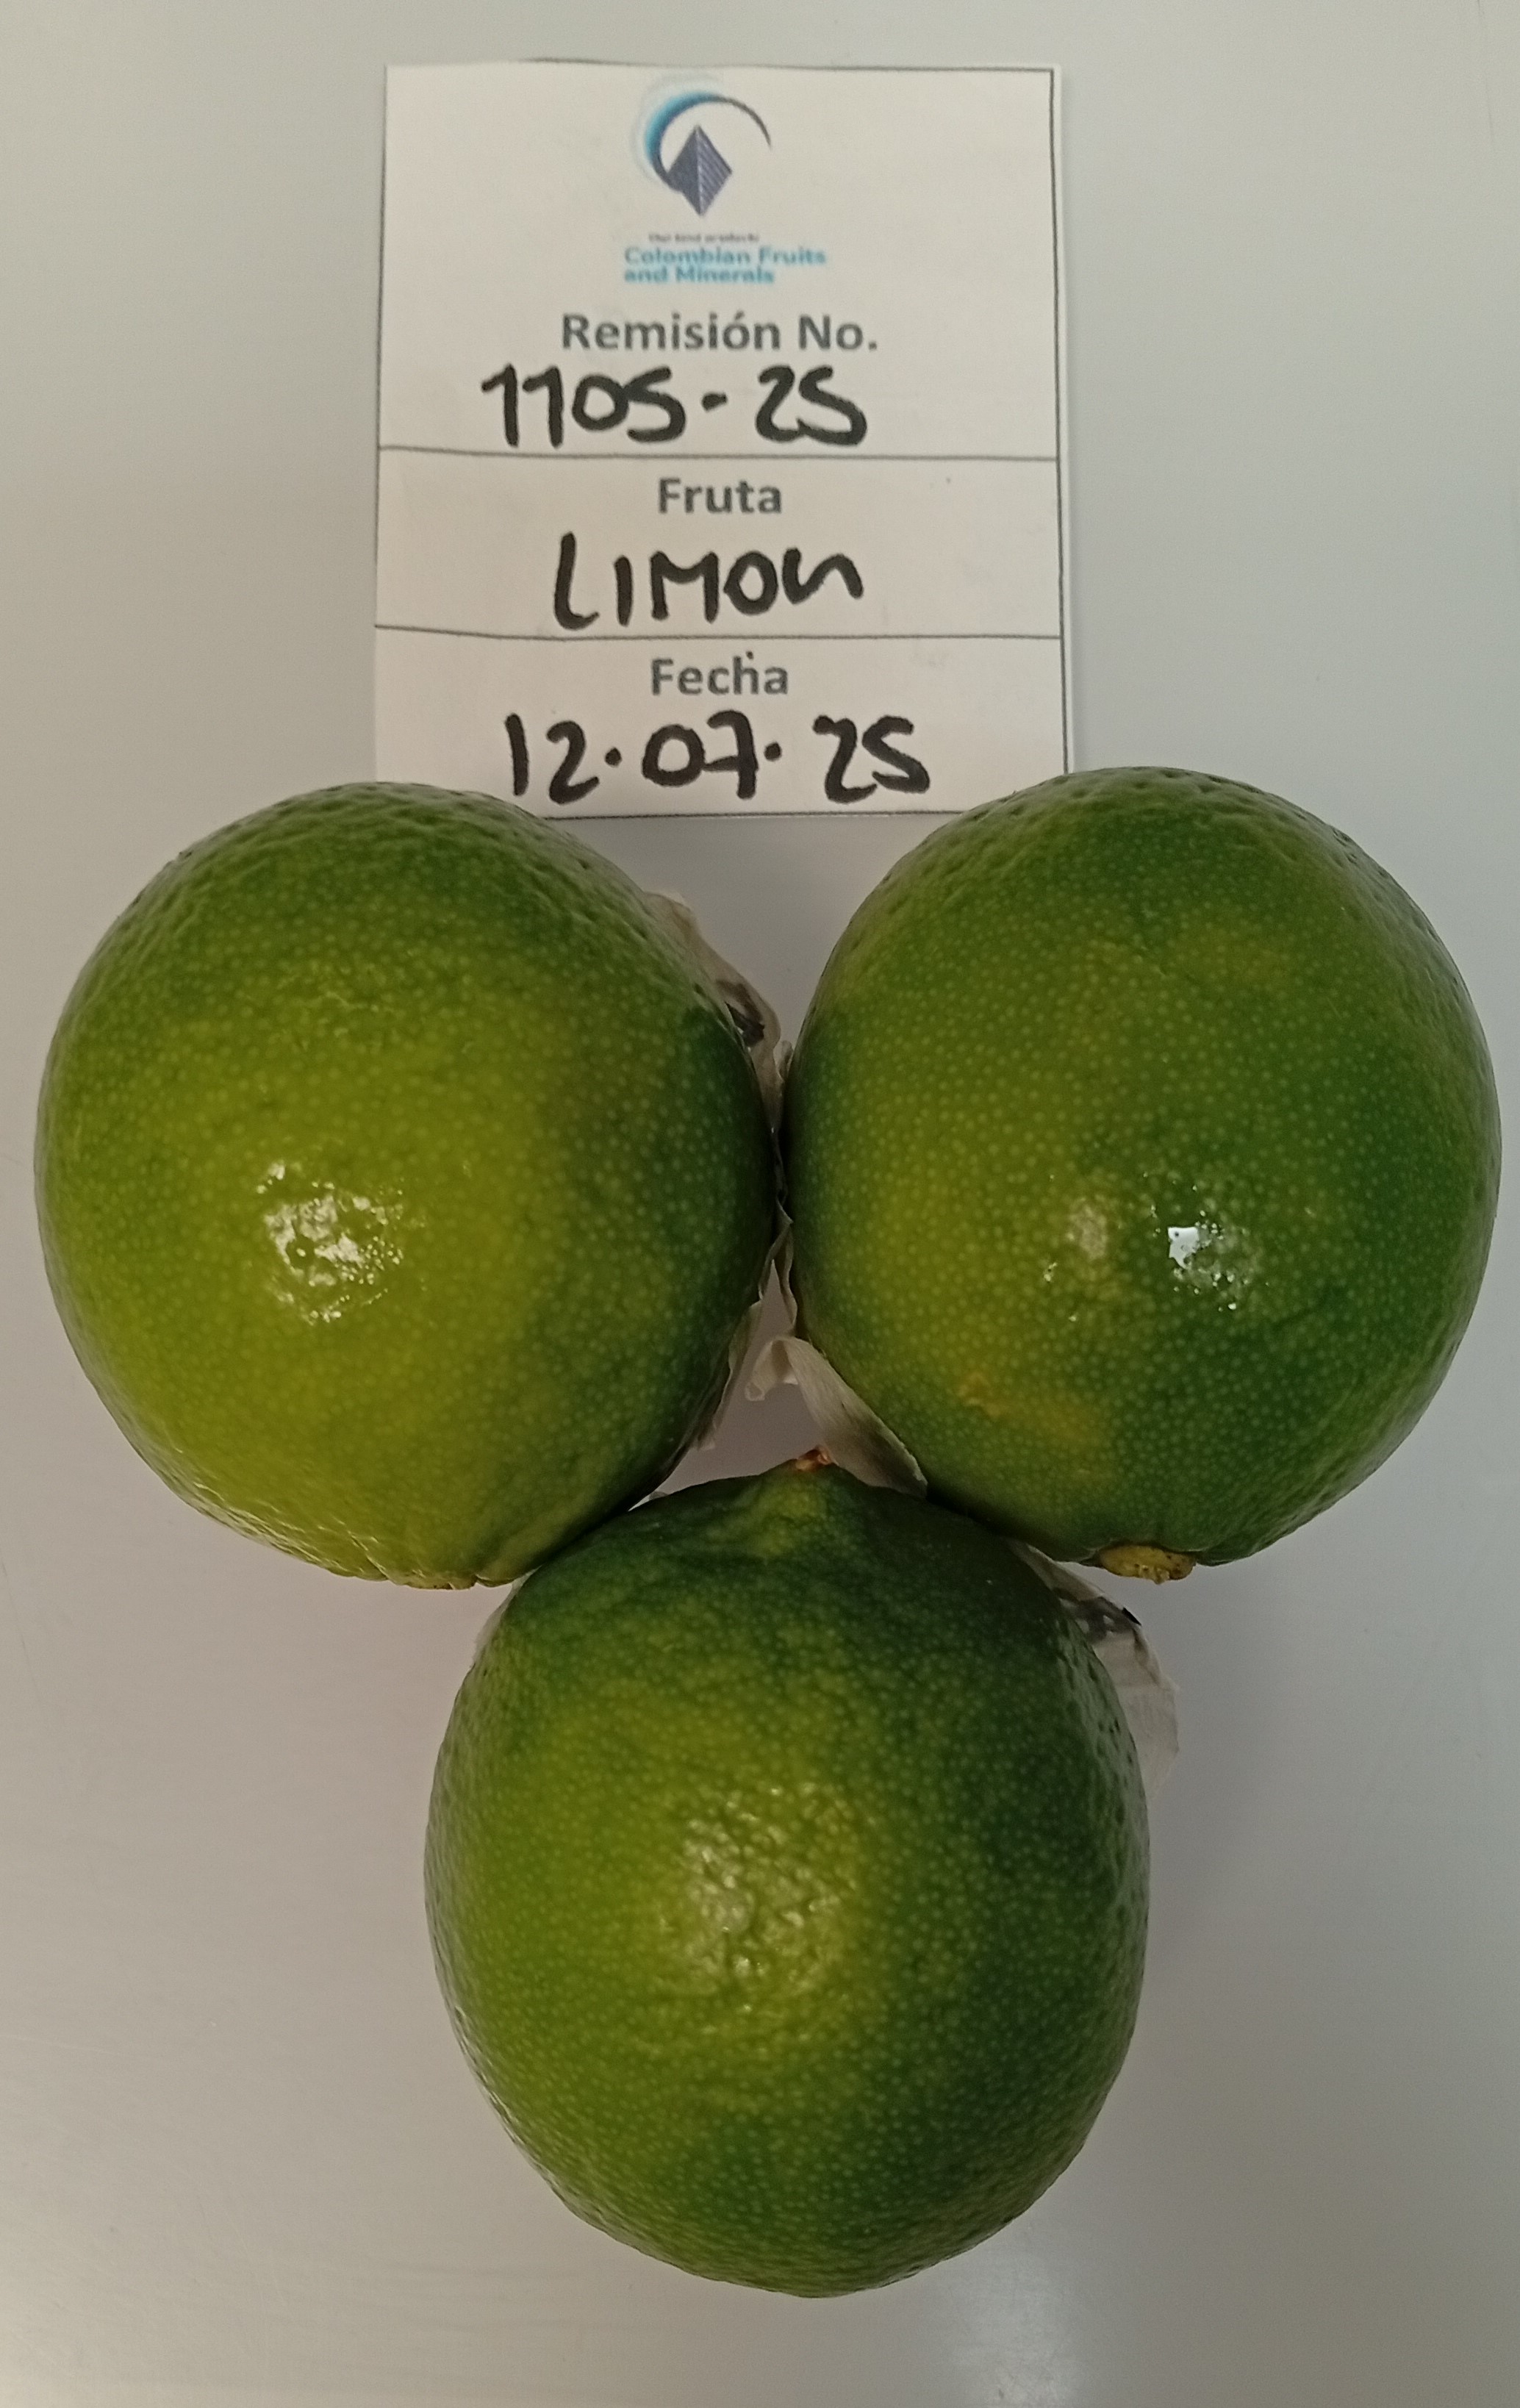 Colombian Fruits
and Minerals
Remisión No.
1105-25
Fruta
LIMON
Fecha
12.07.25